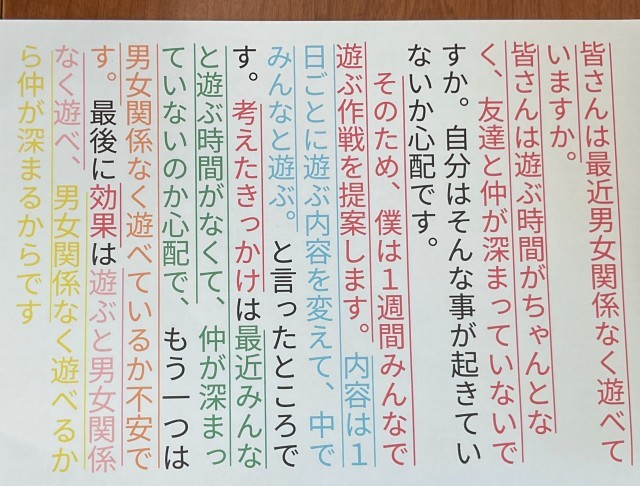 皆さんは最近男女関係なく遊べて
いますか。
皆さんは遊ぶ時間がちゃんとな
く、友達と仲が深まっていないで
すか。自分はそんな事が起きてい
ないか心配です。
そのため、僕は１週間みんなで
遊ぶ作戦を提案します。内容は１
日ごとに遊ぶ内容を変えて、中で
みんなと遊ぶ。と言ったところで
す。考えたきっかけは最近みんな
と遊ぶ時間がなくて、仲が深まっ
ていないのか心配で、もう一つは
男女関係なく遊べているか不安で
す。最後に効果は遊ぶと男女関係
なく遊べ、男女関係なく遊べるか
ら仲が深まるからです